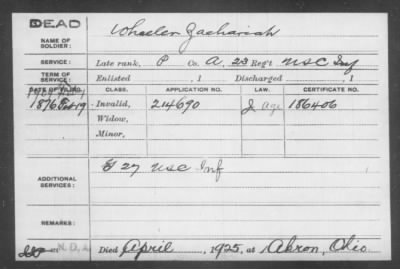 DEAD
NAME OF SOLDIER: Wheeler Zachariah
SERVICE: Late rank, P Co. A, 23 Reg't USC Inf
TERM OF SERVICE: Enlisted , 1 Discharged , 1
DATE OF FILING. CLASS. APPLICATION NO. LAW. CERTIFICATE NO.
1876 Feb 19 Invalid, 214690 age 186406
Widow,
Minor,
ADDITIONAL SERVICES: 27 USC Inf
REMARKS:
Died April , 1925, at Akron, Ohio